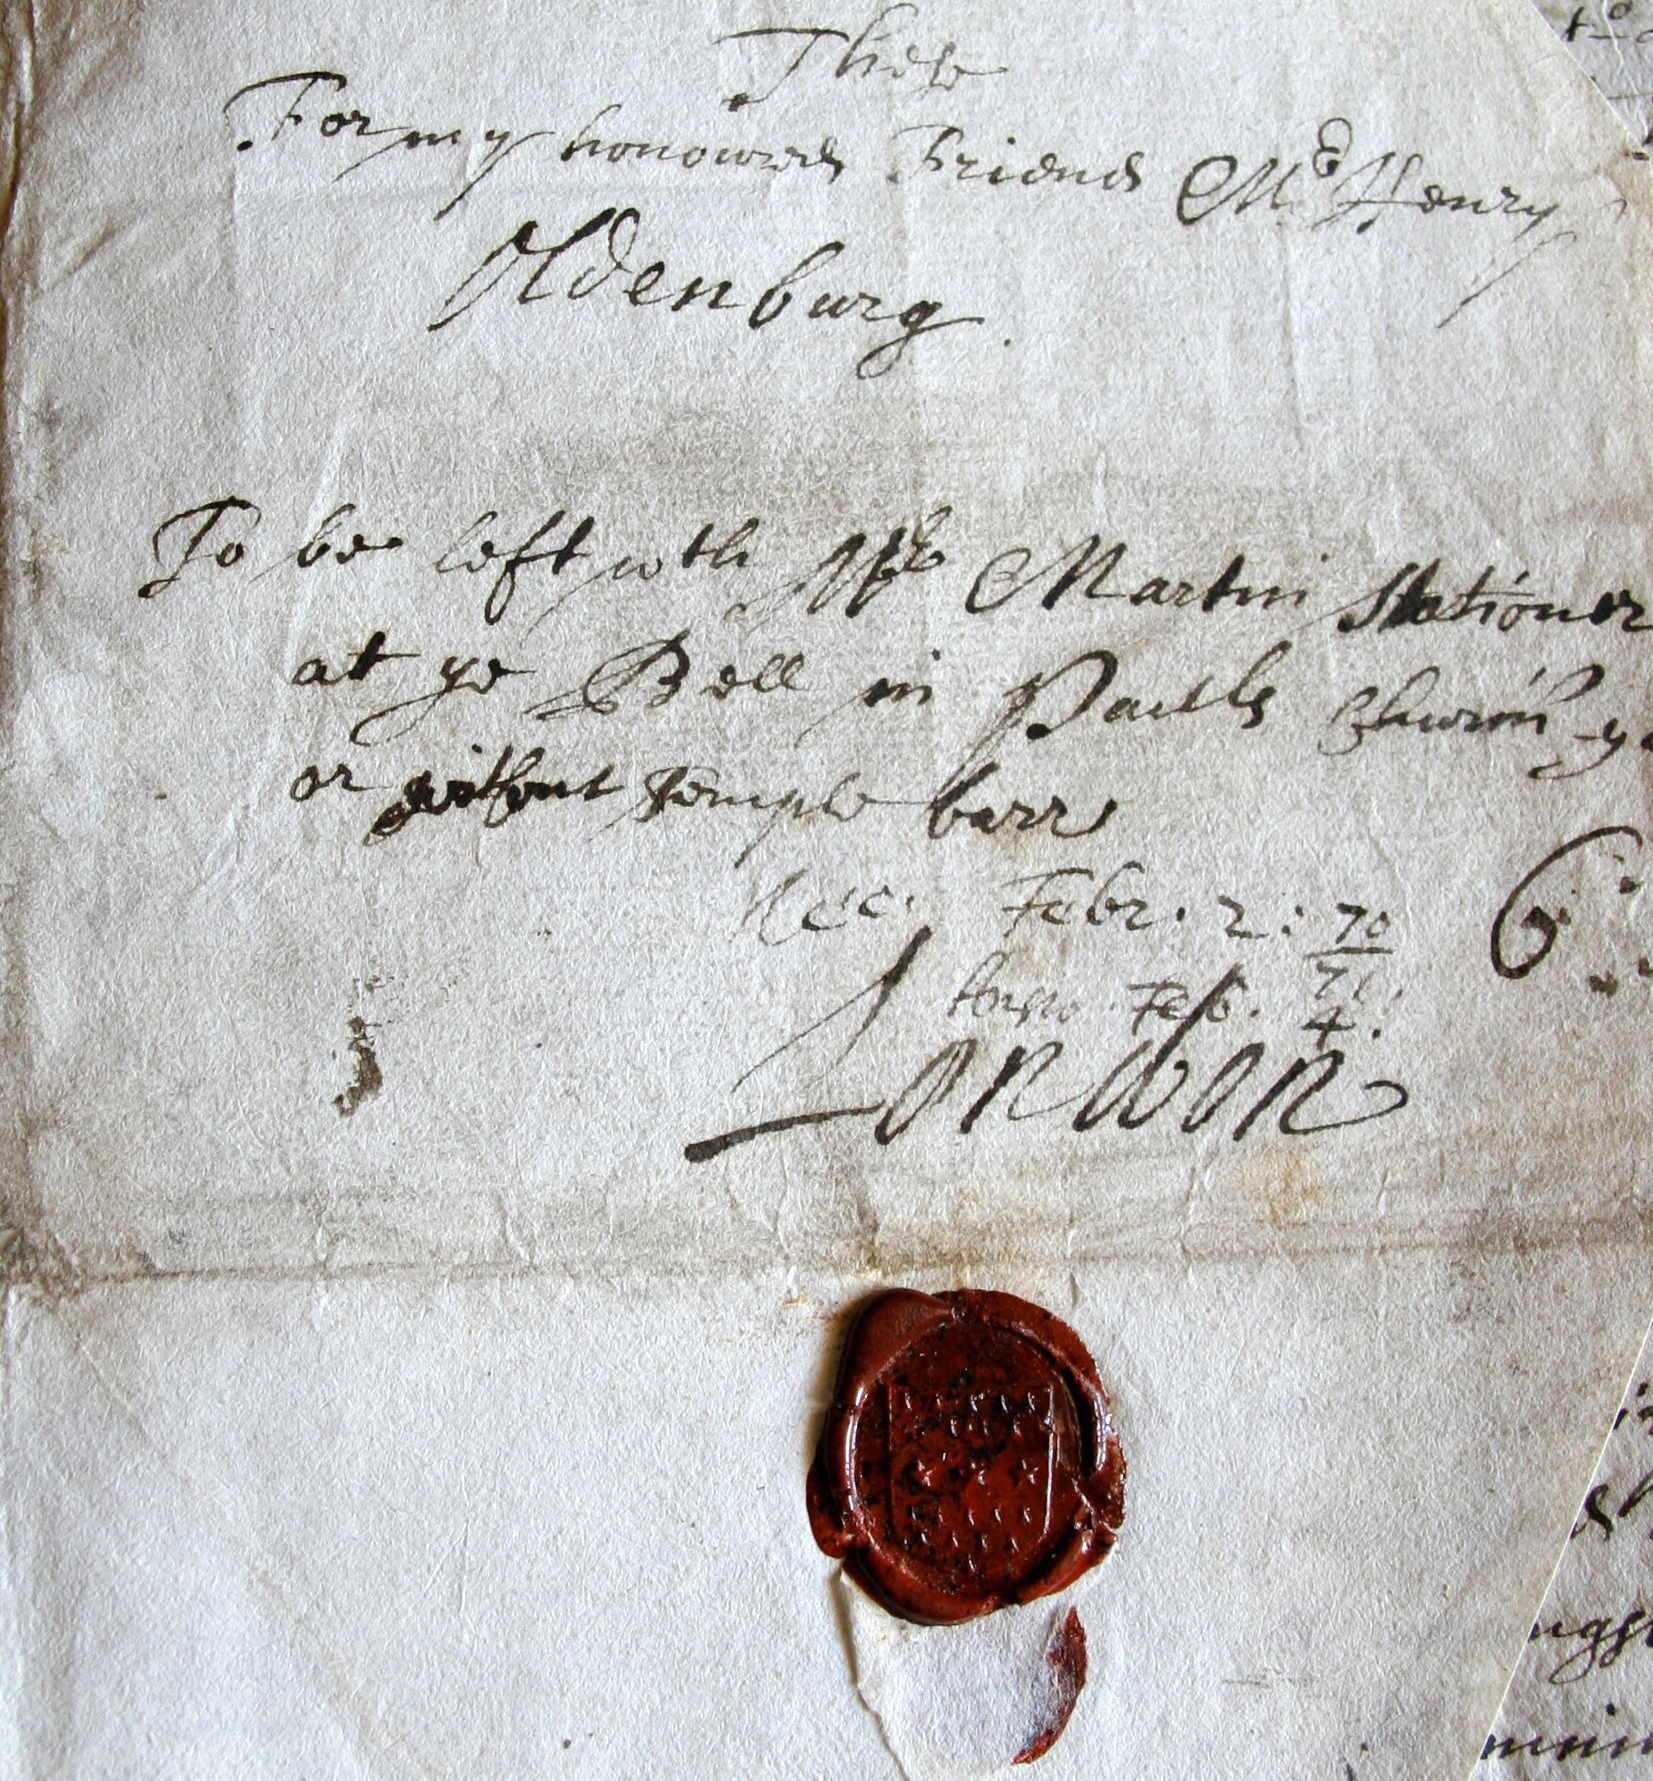 These
For my honoured Friend Mr Henry
Oldenburg.
To be left wth Mr Martin Stationer
at ye Bell in Pauls Church-y
or without Temple barr
Rec. Febr. 2: 70/71.
Answ. Feb. 4.
London
6